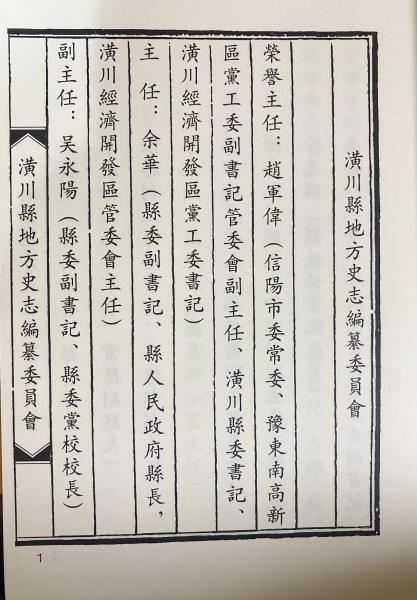 潢川縣地方史志編纂委員會
榮譽主任：趙軍偉（信陽市委常委、豫東南高新
區黨工委副書記管委會副主任、潢川縣委書記、
潢川經濟開發區黨工委書記）
主　任：余華（縣委副書記、縣人民政府縣長，
潢川經濟開發區管委會主任）
副主任：吴永陽（縣委副書記、縣委黨校校長）
潢川縣地方史志編纂委員會
1